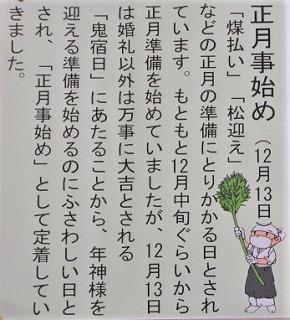 正月事始め（12月13日）
「煤払い」「松迎え」
などの正月の準備にとりかかる日とされ
ています。もともと12月中旬ぐらいから
正月準備を始めていましたが、12月13日
は婚礼以外は万事に大吉とされる
「鬼宿日」にあたることから、年神様を
迎える準備を始めるのにふさわしい日と
され、「正月事始め」として定着してい
きました。